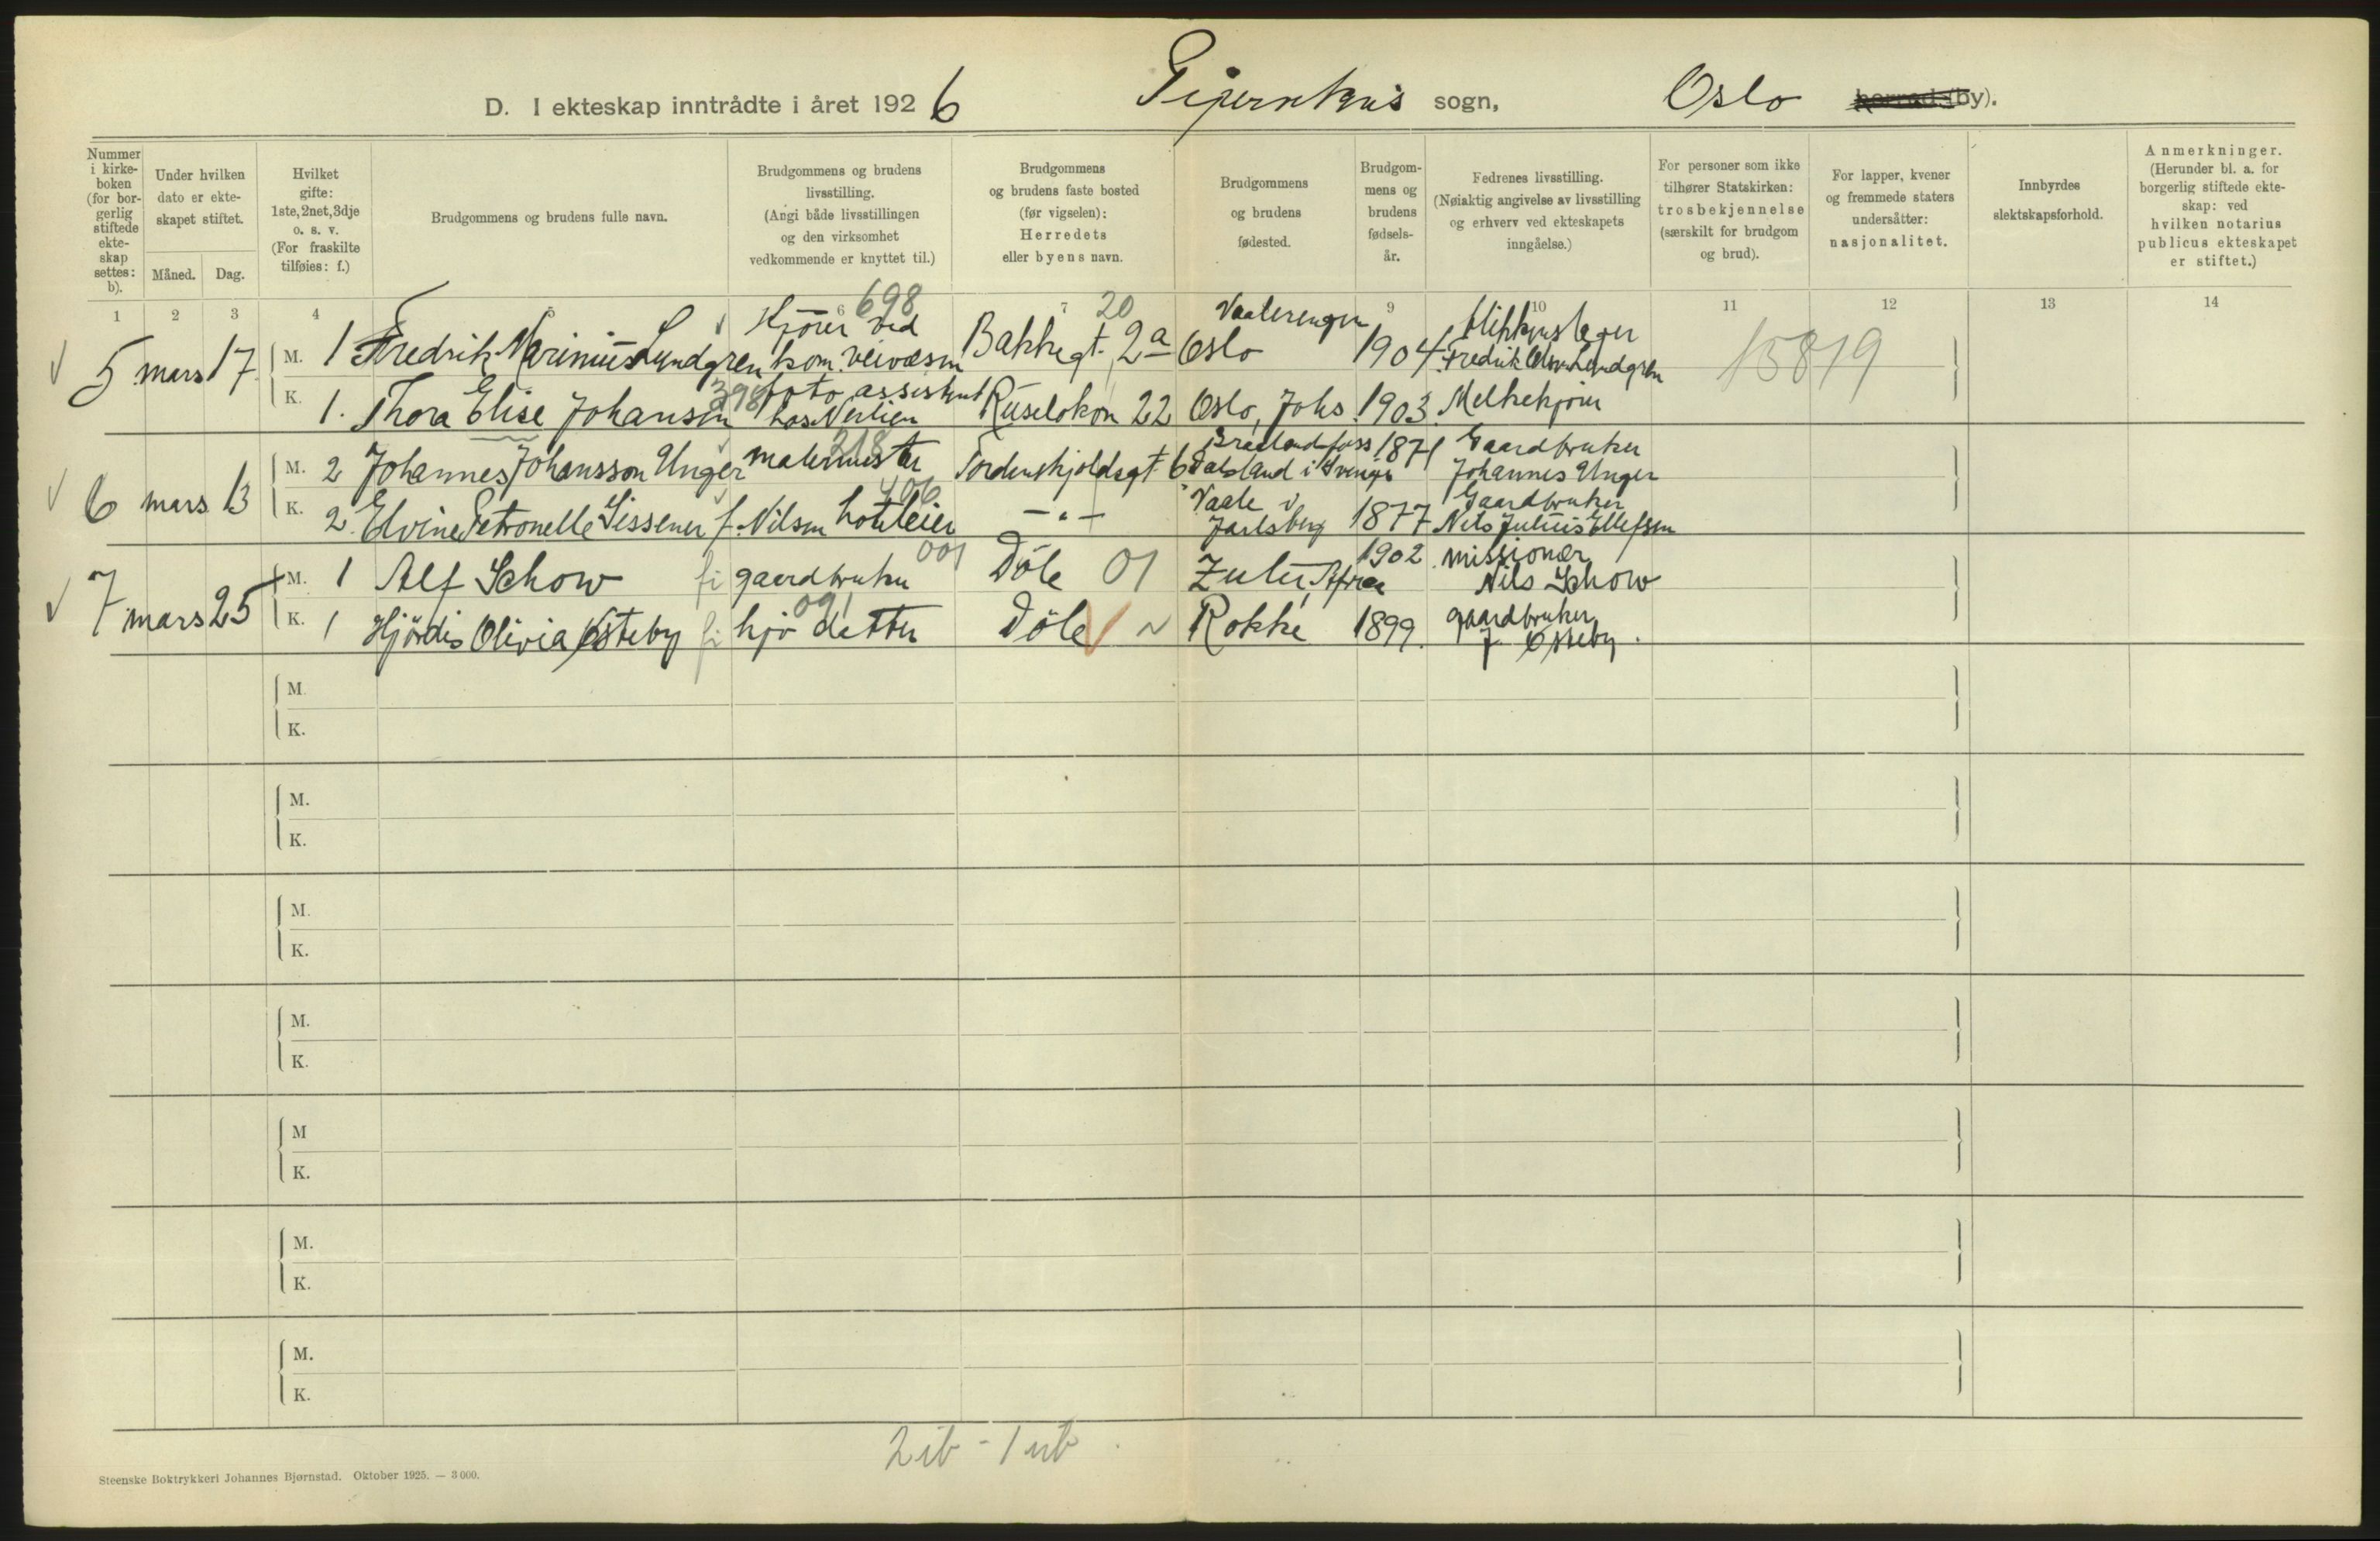 D. I ekteskap inntrådte i året 1926 sogn, Oslo herred (by).
Nummer i kirkeboken (for borgerlig stiftede ekteskap settes: b).
Under hvilken dato er ekteskapet stiftet.
Måned. Dag.
Hvilket gifte: 1ste, 2net, 3dje o. s. v. (For fraskilte tilføies: f.)
Brudgommens og brudens fulle navn.
Brudgommens og brudens livsstilling. (Angi både livsstillingen og den virksomhet vedkommende er knyttet til.)
Brudgommens og brudens faste bosted (før vigselen): Herredets eller byens navn.
Brudgommens og brudens fødested.
Brudgommens og brudens fødselsår.
Fedrenes livsstilling. (Nøiaktig angivelse av livsstilling og erhverv ved ekteskapets inngåelse.)
For personer som ikke tilhører Statskirken: trosbekjennelse (særskilt for brudgom og brud).
For lapper, kvener og fremmede staters undersåtter: nasjonalitet.
Innbyrdes slektskapsforhold.
Anmerkninger. (Herunder bl. a. for borgerlig stiftede ekteskap: ved hvilken notarius publicus ekteskapet er stiftet.)
1 2 3 4 5 6 7 9 10 11 12 13 14
698 20
5 mars 17 M. 1 Fredrik Marinius Lundgren Kjører ved kom. veivæsen Bakkegt. 2a Vaalerengen Oslo 1904 blikkenslager Fredrik Lundgren 15819
398
K. 1. Thora Elise Johansen foto assistent hos Ruselökon 22 Oslo, Johs. 1903 Melkekjører
218
6 mars 13 M. 2 Johannes Johansson Unger malermester Tordenskjoldsgt 6 Dalsland i Sverige 1871 Gaardbruker Johannes Unger
406
K. 2. Elvine Petronelle Sissener f. Nilsen - " - Vaale v Jarlsberg 1877 Gaardbruker Nils Julius Ellefsen
001
7 mars 25 M. 1 Alf Schow fi gaardbruker Döle 01 Zulu, Afrca 1902 missionær Nils Schow
091
K. 1 Hjördis Olivia Österby fi hjv datter Döle ~ Rokke 1899. gaardbruker J.
M.
K.
M.
K.
M.
K.
M.
K.
M
K.
M.
K.
M.
K.
2 ib - 1 ub
Steenske Boktrykkeri Johannes Bjørnstad. Oktober 1925. — 3000.